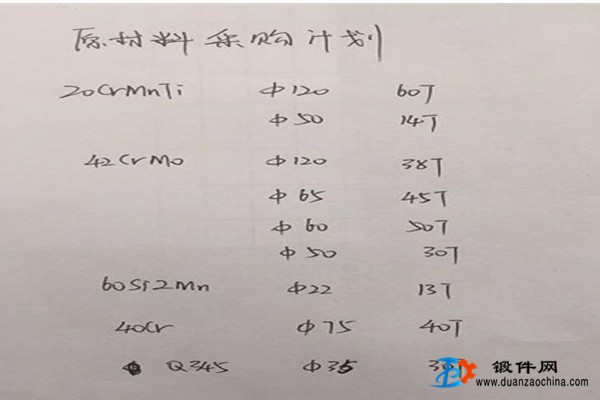 原材料采购计划
20CrMnTi Φ120 60T
Φ50 14T
42CrMo Φ120 38T
Φ65 45T
Φ60 50T
Φ50 30T
60Si2Mn Φ22 13T
40Cr Φ75 40T
Q345 Φ35
锻件网
www.duanzaochina.com